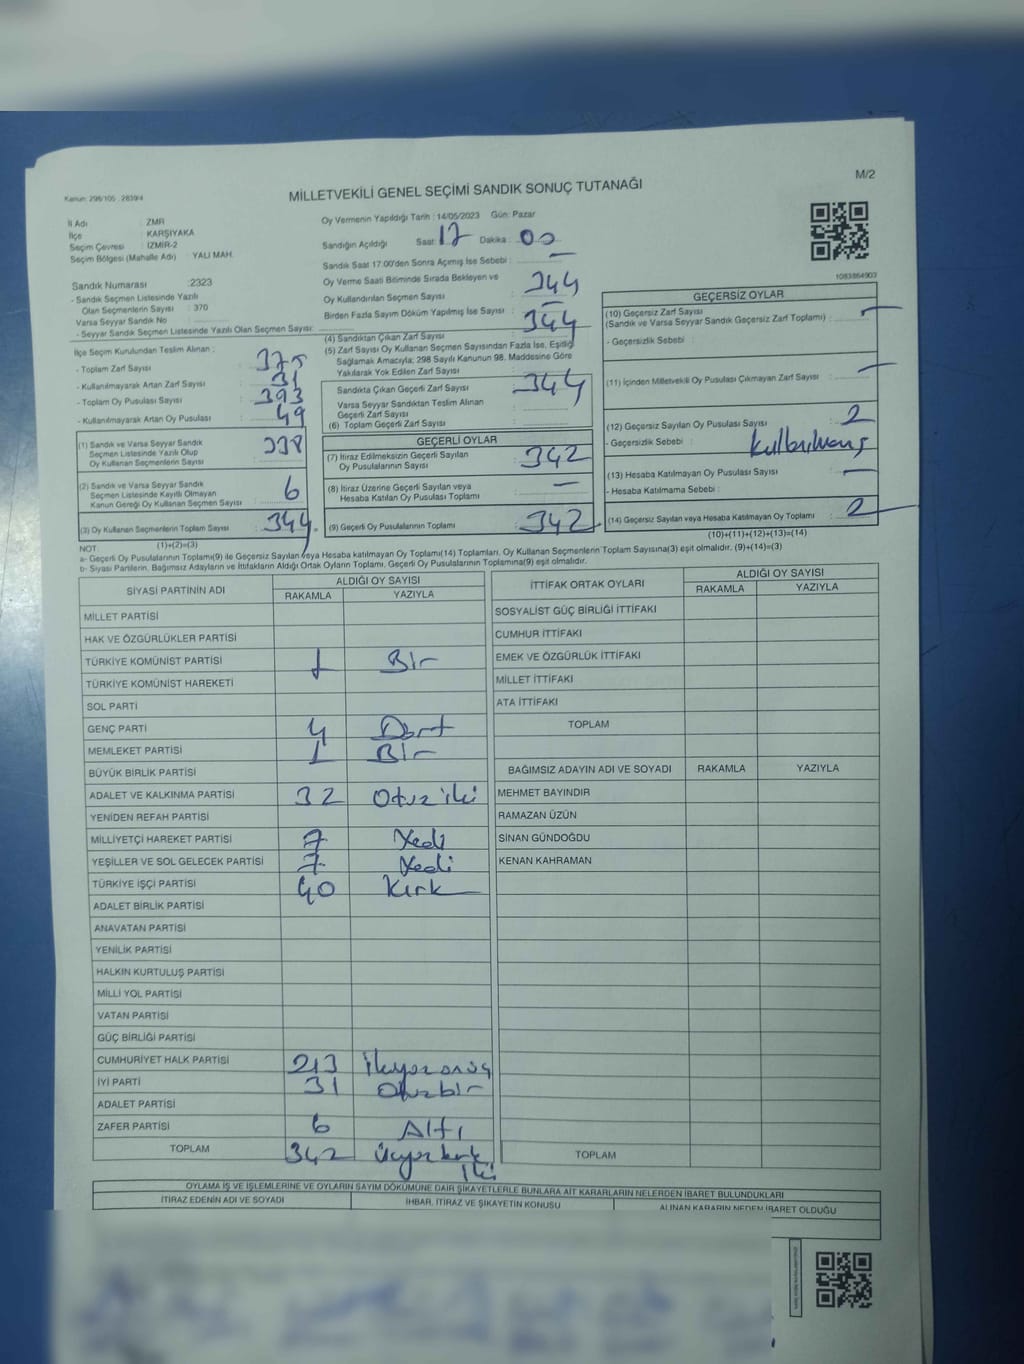 M/2
Kanun: 298/105 , 2839/4
MİLLETVEKİLİ GENEL SEÇİMİ SANDIK SONUÇ TUTANAĞI
İl Adı : ZMR
İlçe : KARŞIYAKA
Seçim Çevresi : İZMİR-2
Seçim Bölgesi (Mahalle Adı) : YALI MAH.
Sandık Numarası :2323
- Sandık Seçmen Listesinde Yazılı
Olan Seçmenlerin Sayısı : 370
Varsa Seyyar Sandık No
- Seyyar Sandık Seçmen Listesinde Yazılı Olan Seçmen Sayısı:
İlçe Seçim Kurulundan Teslim Alınan :
- Toplam Zarf Sayısı : 375
- Kullanılmayarak Artan Zarf Sayısı : 31
- Toplam Oy Pusulası Sayısı : 393
- Kullanılmayarak Artan Oy Pusulası : 49
(1) Sandık ve Varsa Seyyar Sandık
Seçmen Listesinde Yazılı Olup
Oy Kullanan Seçmenlerin Sayısı : 338
(2) Sandık ve Varsa Seyyar Sandık
Seçmen Listesinde Kayıtlı Olmayan
Kanun Gereği Oy Kullanan Seçmen Sayısı : 6
(3) Oy Kullanan Seçmenlerin Toplam Sayısı : 344
(1)+(2)=(3)
Oy Vermenin Yapıldığı Tarih : 14/05/2023 Gün: Pazar
Sandığın Açıldığı Saat: 17 Dakika : 00
Sandık Saat 17:00'den Sonra Açımış İse Sebebi : —
Oy Verme Saati Bitiminde Sırada Bekleyen ve
Oy Kullandırılan Seçmen Sayısı : 344
Birden Fazla Sayım Döküm Yapılmış İse Sayısı : —
(4) Sandıktan Çıkan Zarf Sayısı : 344
(5) Zarf Sayısı Oy Kullanan Seçmen Sayısından Fazla İse, Eşitliği
Sağlamak Amacıyla; 298 Sayılı Kanunun 98. Maddesine Göre
Yakılarak Yok Edilen Zarf Sayısı :
Sandıkta Çıkan Geçerli Zarf Sayısı : 344
Varsa Seyyar Sandıktan Teslim Alınan
Geçerli Zarf Sayısı :
(6) Toplam Geçerli Zarf Sayısı :
GEÇERLİ OYLAR
(7) İtiraz Edilmeksizin Geçerli Sayılan
Oy Pusulalarının Sayısı : 342
(8) İtiraz Üzerine Geçerli Sayılan veya
Hesaba Katılan Oy Pusulası Toplamı : —
(9) Geçerli Oy Pusulalarının Toplamı : 342
1083864903
GEÇERSİZ OYLAR
(10) Geçersiz Zarf Sayısı
(Sandık ve Varsa Seyyar Sandık Geçersiz Zarf Toplamı) : —
- Geçersizlik Sebebi :
(11) İçinden Milletvekili Oy Pusulası Çıkmayan Zarf Sayısı : —
(12) Geçersiz Sayılan Oy Pusulası Sayısı : 2
- Geçersizlik Sebebi :
(13) Hesaba Katılmayan Oy Pusulası Sayısı : —
- Hesaba Katılmama Sebebi :
(14) Geçersiz Sayılan veya Hesaba Katılmayan Oy Toplamı : 2
(10)+(11)+(12)+(13)=(14)
NOT:
a- Geçerli Oy Pusulalarının Toplamı(9) ile Geçersiz Sayılan veya Hesaba katılmayan Oy Toplamı(14) Toplamları, Oy Kullanan Seçmenlerin Toplam Sayısına(3) eşit olmalıdır. (9)+(14)=(3)
b- Siyasi Partilerin, Bağımsız Adayların ve İttifakların Aldığı Ortak Oyların Toplamı, Geçerli Oy Pusulalarının Toplamına(9) eşit olmalıdır.
SİYASİ PARTİNİN ADI ALDIĞI OY SAYISI
RAKAMLA YAZIYLA
MİLLET PARTİSİ
HAK VE ÖZGÜRLÜKLER PARTİSİ
TÜRKİYE KOMÜNİST PARTİSİ 1 Bir
TÜRKİYE KOMÜNİST HAREKETİ
SOL PARTİ
GENÇ PARTİ 4 Dört
MEMLEKET PARTİSİ 1 Bir
BÜYÜK BİRLİK PARTİSİ
ADALET VE KALKINMA PARTİSİ 32 Otuz iki
YENİDEN REFAH PARTİSİ
MİLLİYETÇİ HAREKET PARTİSİ 7 Yedi
YEŞİLLER VE SOL GELECEK PARTİSİ 7 Yedi
TÜRKİYE İŞÇİ PARTİSİ 40 Kırk
ADALET BİRLİK PARTİSİ
ANAVATAN PARTİSİ
YENİLİK PARTİSİ
HALKIN KURTULUŞ PARTİSİ
MİLLİ YOL PARTİSİ
VATAN PARTİSİ
GÜÇ BİRLİĞİ PARTİSİ
CUMHURİYET HALK PARTİSİ 213 İkiyüzonüç
İYİ PARTİ 31 Otuzbir
ADALET PARTİSİ
ZAFER PARTİSİ 6 Altı
TOPLAM 342 Üçyüzkırk
iki
İTTİFAK ORTAK OYLARI ALDIĞI OY SAYISI
RAKAMLA YAZIYLA
SOSYALİST GÜÇ BİRLİĞİ İTTİFAKI
CUMHUR İTTİFAKI
EMEK VE ÖZGÜRLÜK İTTİFAKI
MİLLET İTTİFAKI
ATA İTTİFAKI
TOPLAM
BAĞIMSIZ ADAYIN ADI VE SOYADI RAKAMLA YAZIYLA
MEHMET BAYINDIR
RAMAZAN ÜZÜN
SİNAN GÜNDOĞDU
KENAN KAHRAMAN
TOPLAM
OYLAMA İŞ VE İŞLEMLERİNE VE OYLARIN SAYIM DÖKÜMÜNE DAİR ŞİKAYETLERLE BUNLARA AİT KARARLARIN NELERDEN İBARET BULUNDUKLARI
İTİRAZ EDENİN ADI VE SOYADI İHBAR, İTİRAZ VE ŞİKAYETİN KONUSU ALINAN KARARIN NEDEN İBARET OLDUĞU